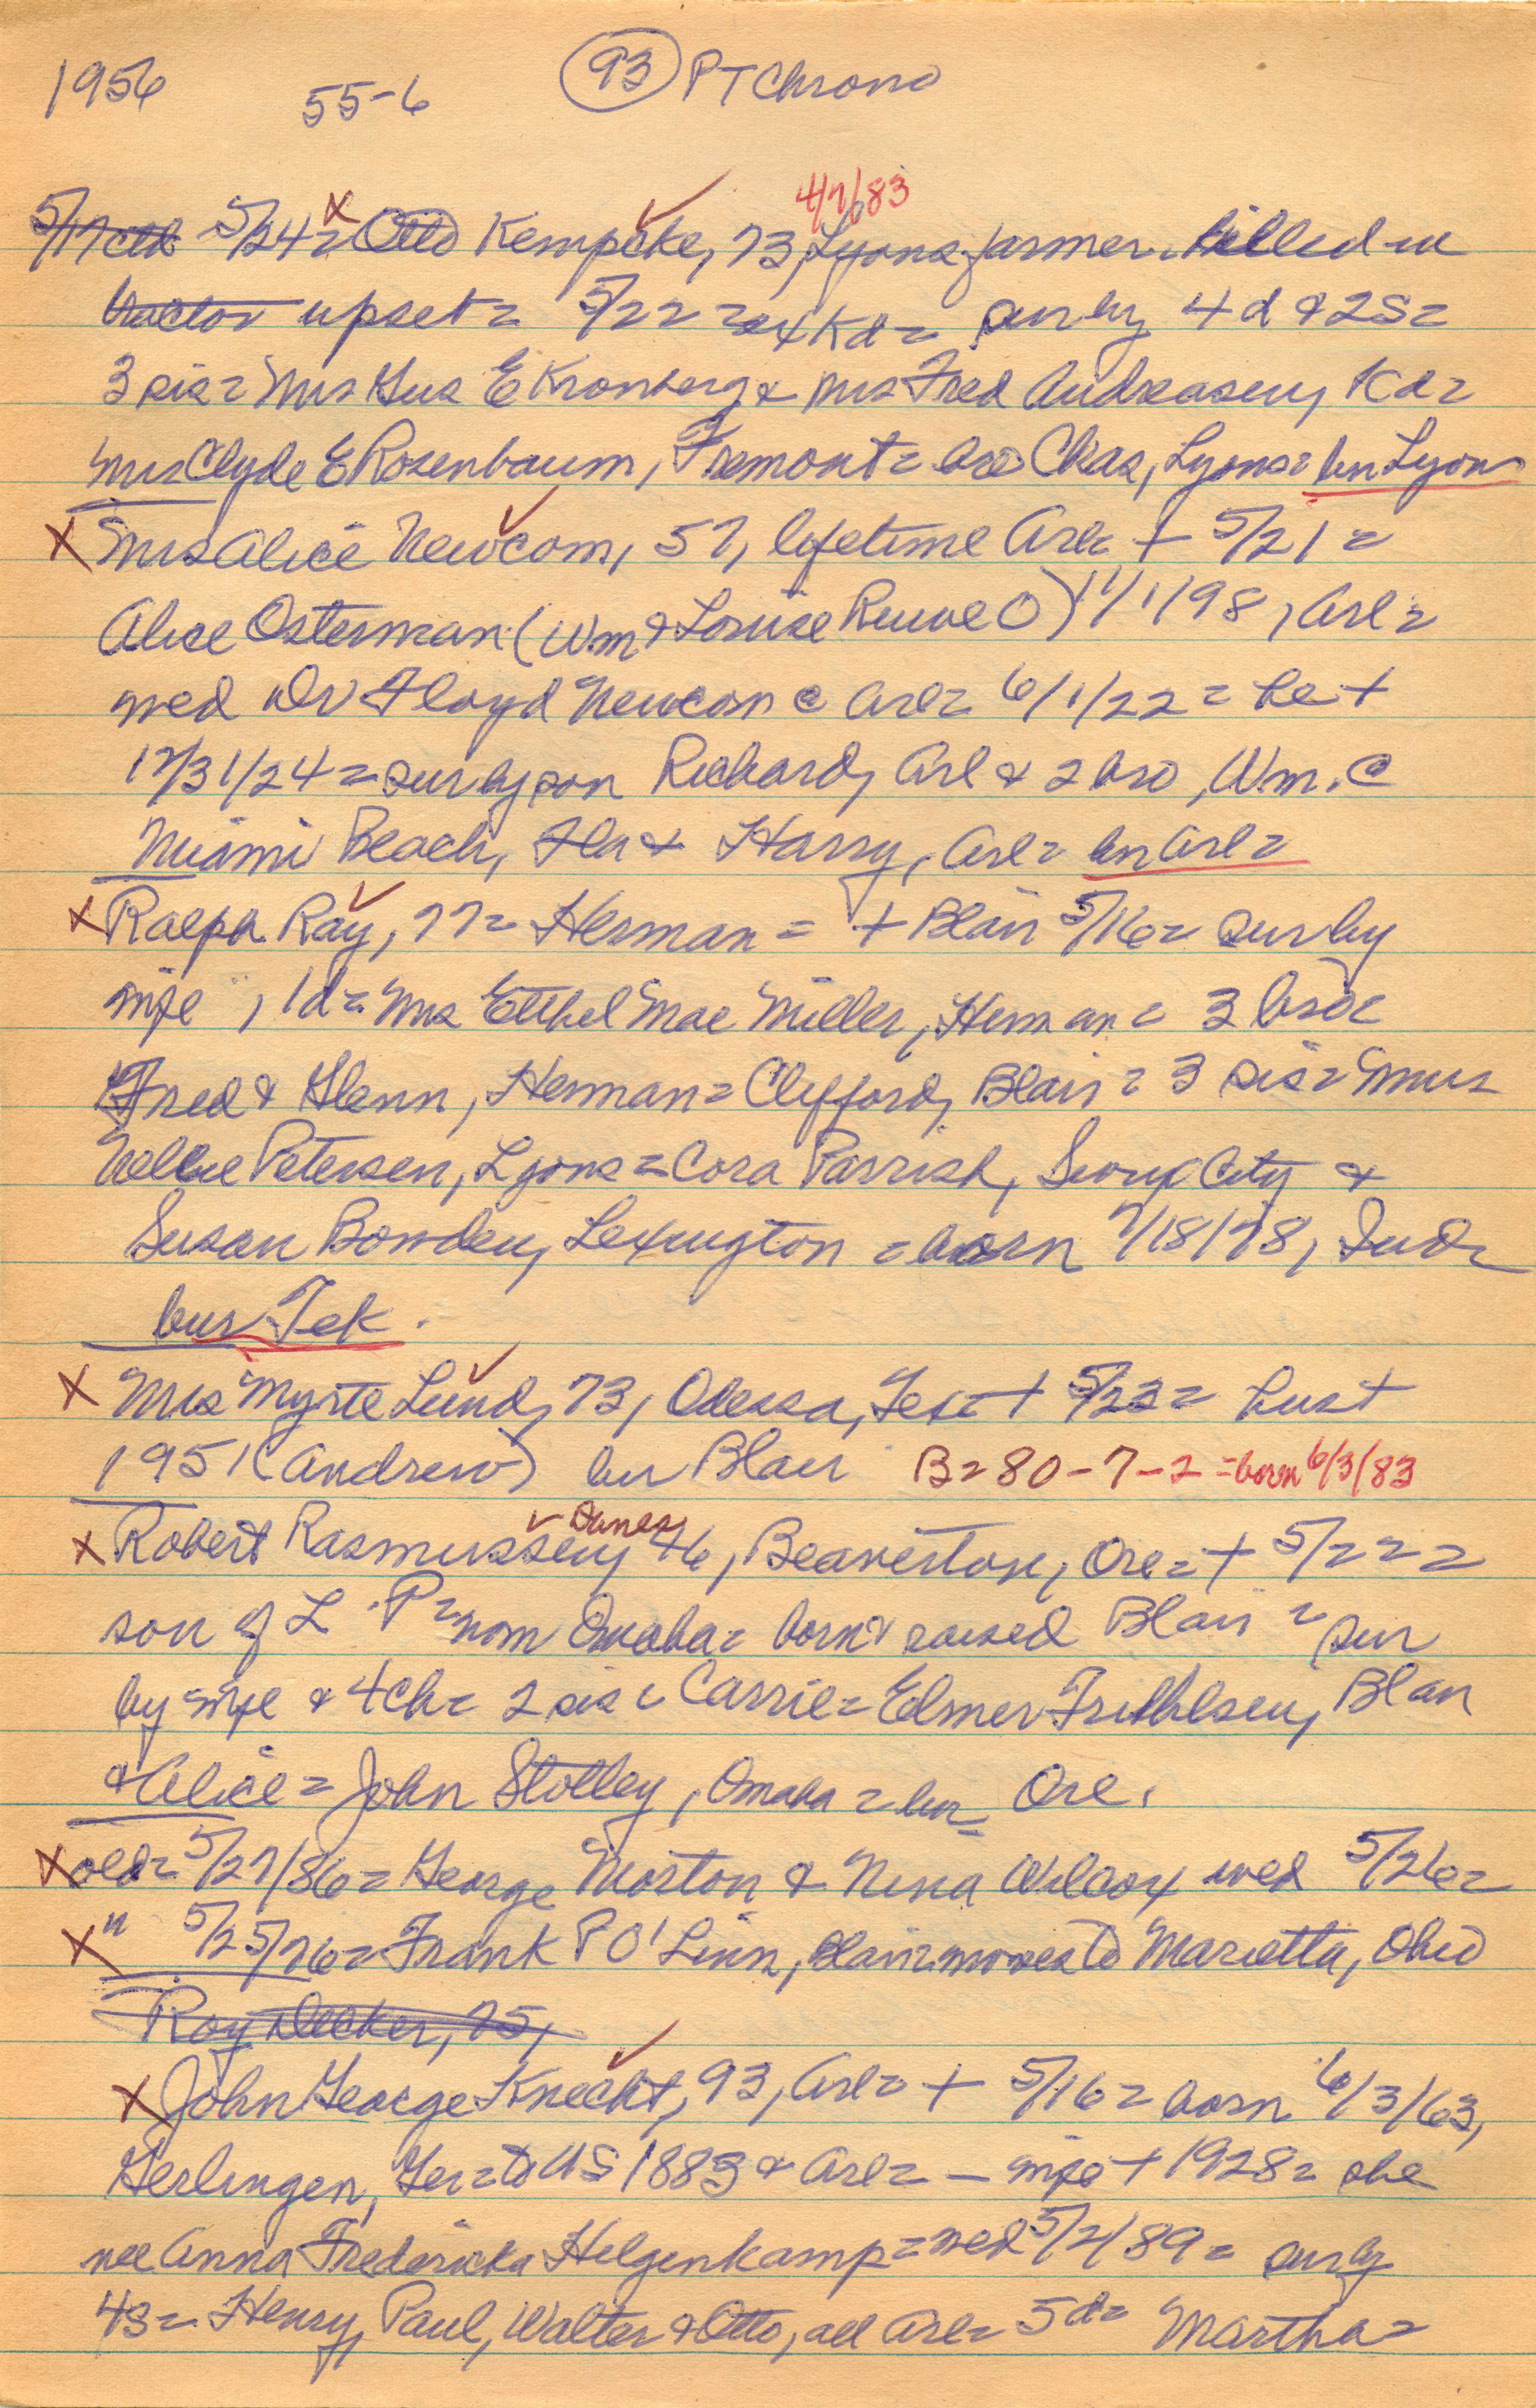 1956 55-6 93 PT Chrono
4/7/83
5/17 5/24= x Otto Kempcke, 73, Lyons farmer killed in
tractor upset= 5/22 = Kd= sur by 4 d & 2S=
3 sis= Mrs Gus E Kronberg & Mrs Fred Andreasen, Kd=
Mrs Clyde E Rosenbaum, Fremont= bro Chas, Lyons= bur Lyons
x Mrs Alice Newcom, 57, lifetime Arl= + 5/21=
Alice Osterman (Wm & Louise Ruwe O) 11/1/98, Arl=
wed Dr Floyd Newcom @ Arl= 6/1/22= he +
12/31/24= sur by son Richard, Arl & 2 bro, Wm. C
Miami Beach, Fla & Harry, Arl= bur Arl=
x Ralph Ray, 77= Herman= + Blair 5/16= sur by
wife, 1d= Mrs Ethel Mae Miller, Herman= 3 bro=
Fred & Glenn, Herman= Clifford, Blair= 3 sis= Mmes
Nellie Petersen, Lyons= Cora Parrish, Sioux City &
Susan Bowden, Lexington= born 7/18/78, Ind=
bur Tek.
x Mrs Myrte Lund, 73, Odessa, Tex= + 5/23= hus +
1951 (Andrew) bur Blair B= 80-7-2 = born 6/3/83
Danes
x Robert Rasmussen, 46, Beaverton, Ore= + 5/22=
son of L P= now Omaha= born & raised Blair= sur
by wife & 4ch= 2 sis= Carrie= Elmer Frithlsen, Blair
& Alice= John Stolley, Omaha= bur Ore.
x old= 5/27/86= George Morton & Nina Wilcox wed 5/26=
x " 5/25/76= Frank P O'Linn, Blair= moves to Marietta, Ohio
Roy Decker, 75,
x John George Knecht, 93, Arl= + 5/16= born 6/3/63,
Gerlingen, Ger= to US 1883 & Arl= – wife + 1928= she
nee Anna Fredericka Helgenkamp= wed 5/2/89= sur by
4S= Henry, Paul, Walter & Otto, all Arl= 5d= Martha=